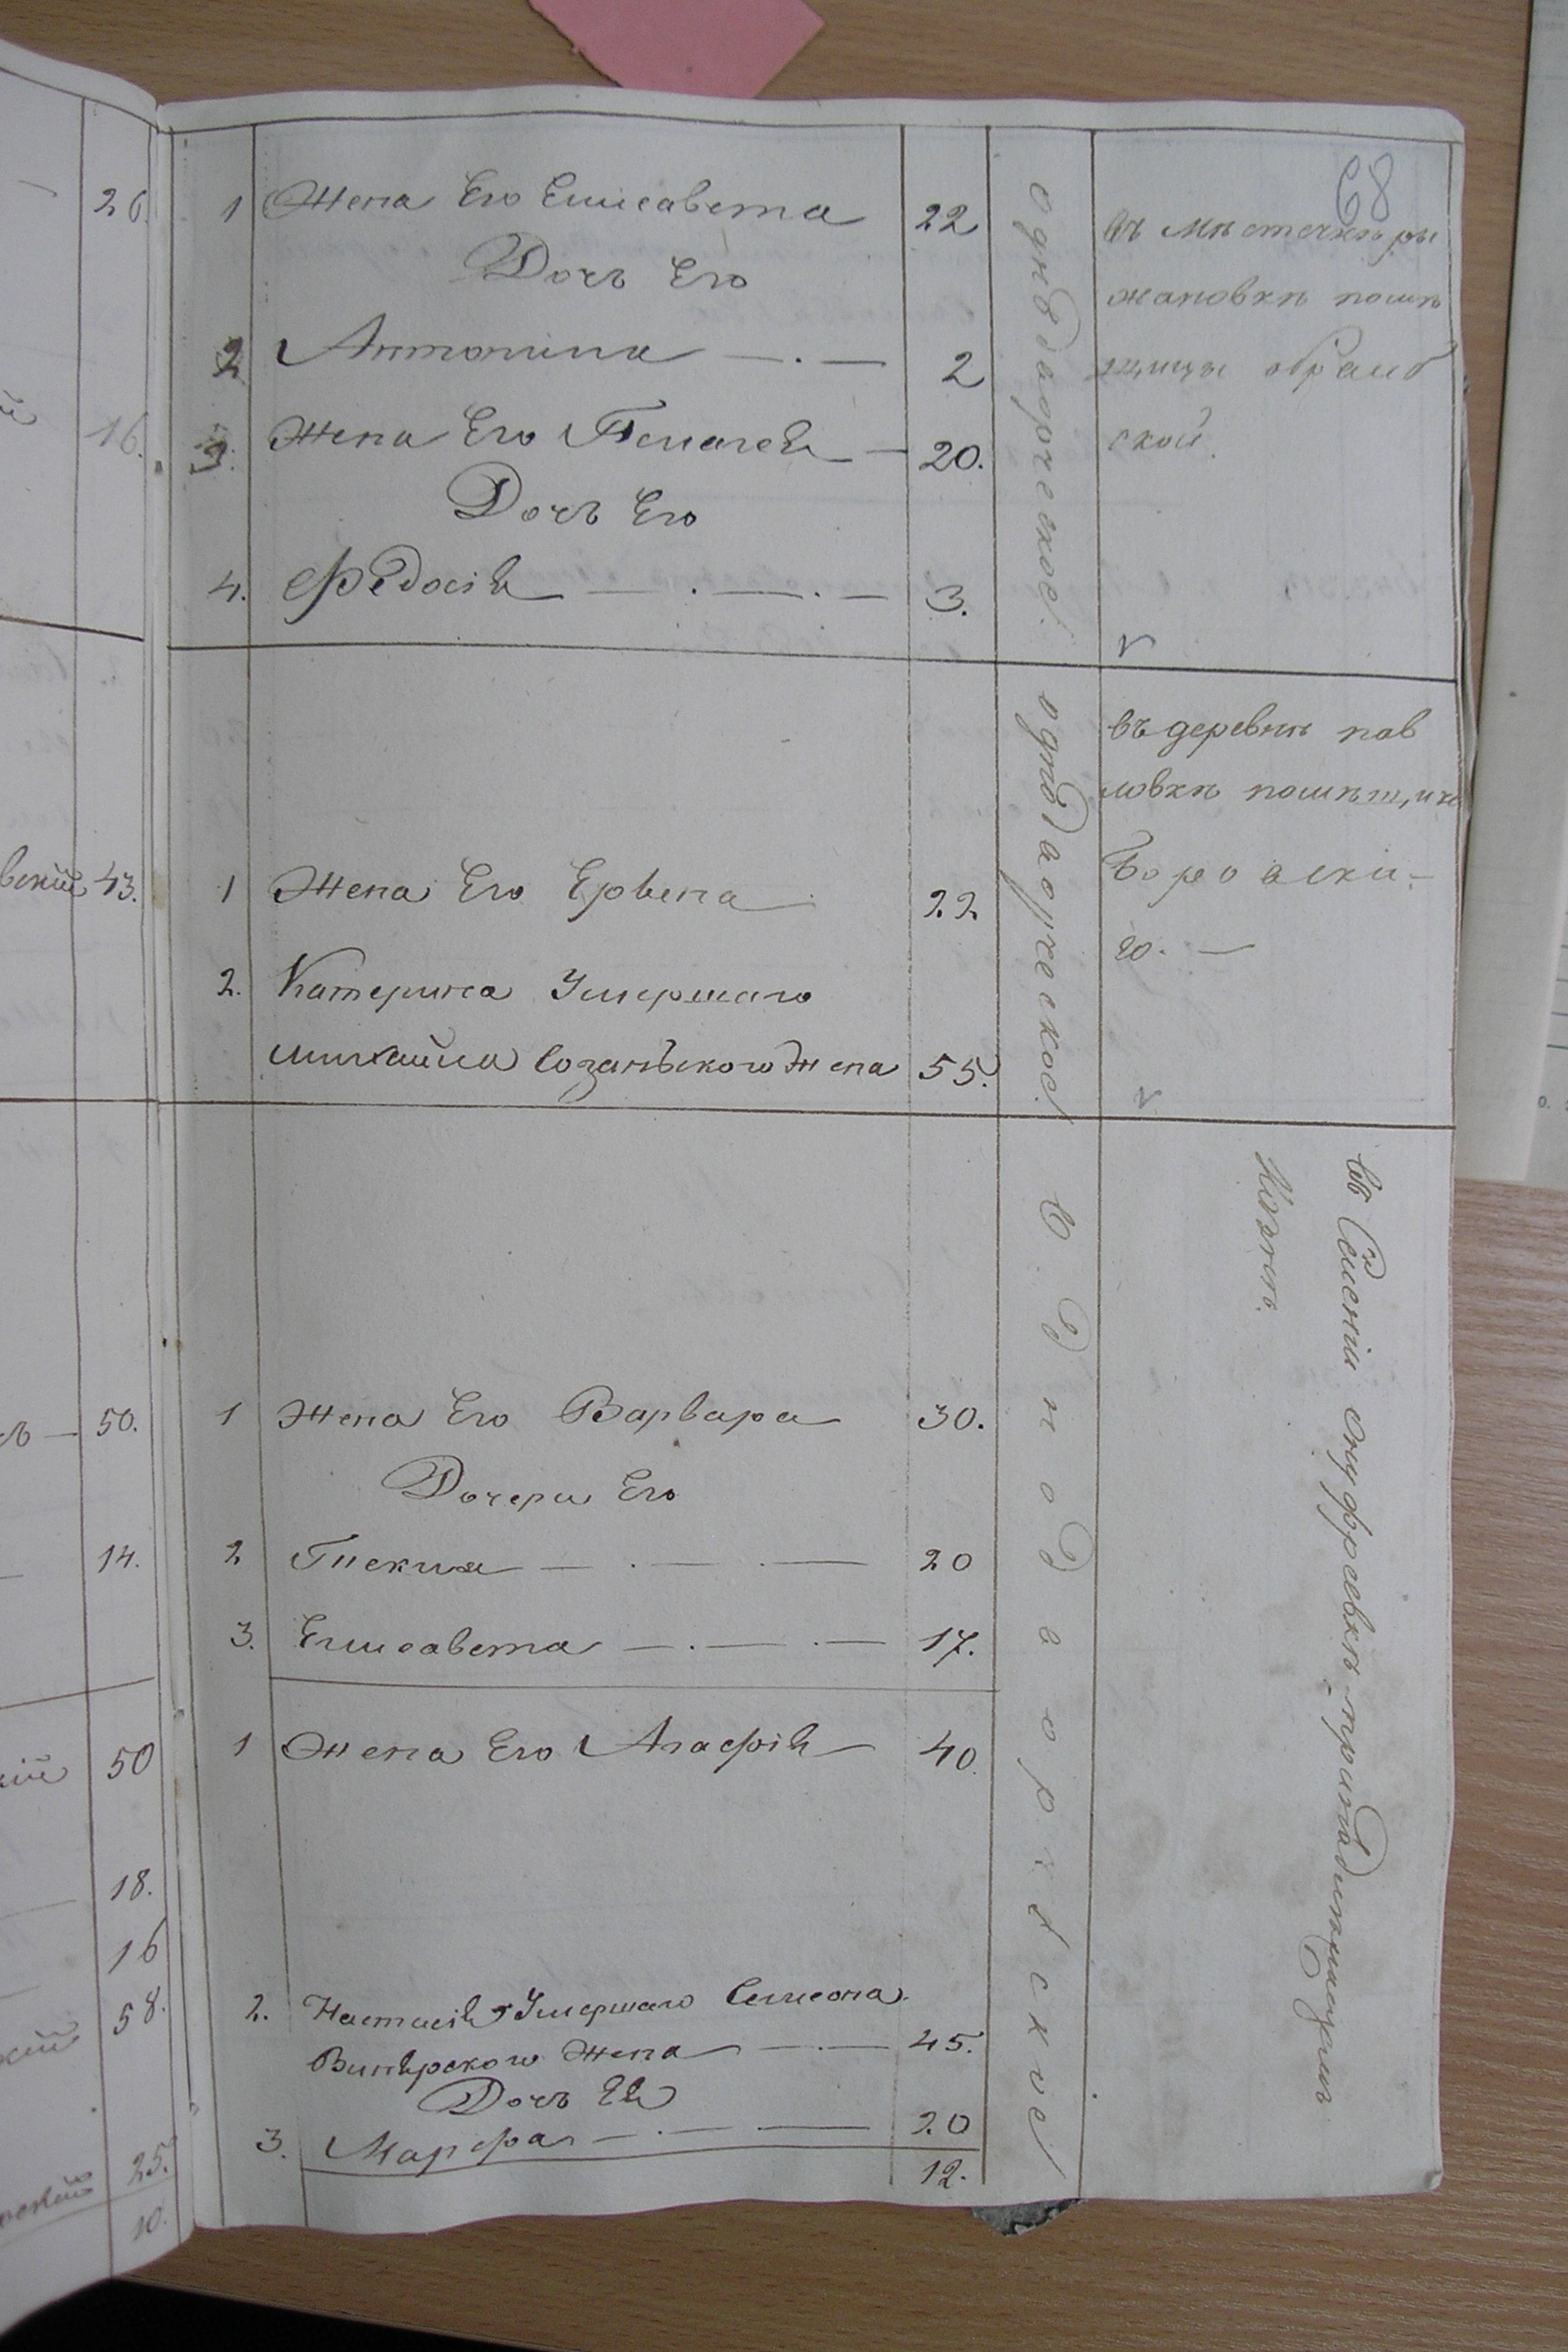 68
1 Жена Его Елисавета 22
Дочь Его
2 Антонина — . — 2
3. Жена Его Пелагея — 20.
Дочь Его
4. Федосія — . — . — 3.
однодворческое
въ мѣстечкѣ ры
жановкѣ помѣ
щицы
ской.
1 Жена Его 22
2. Катерина Умершаго
Михайла Созанского Жена 55.
однодворческое
въ деревнѣ пав
ловкѣ помѣщика
го. —
1 Жена Его Варвара 30.
Дочери Его
2 Текля — . — . — 20
3. Елисавета — . — . — 17.
1 Жена Его Агафія — 40
2. Настасія Умершаго Семеона
Жена — . — 45.
Дочь Ея
3. Марфа — . — — 20
12.
однодворческое
въ Селеніи онуфреевкѣ
26.
16.
вскій 43.
50.
14.
кій 50
18.
16
кій 58.
25.
10.